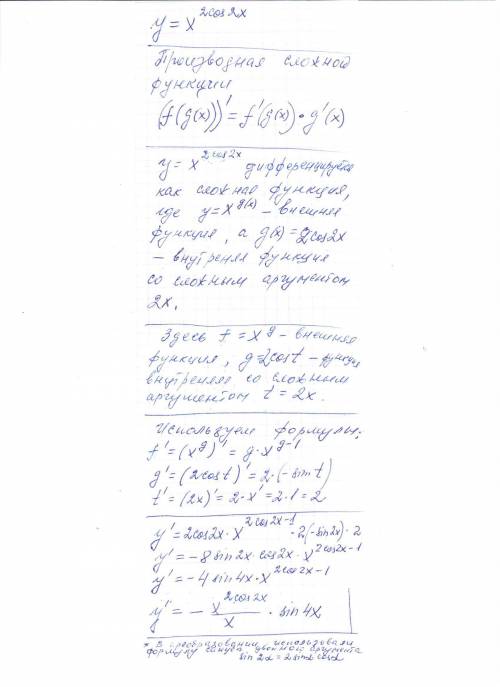 y = x^{2cos2x}
Производная сложной
функции
(f(g(x)))' = f'(g(x)) • g'(x)
y = x^{2cos2x} дифференцируется
как сложная функция,
где y = x^{g(x)} – внешняя
функция, а g(x) = 2cos2x
– внутреняя функция
со сложным аргументом
2x.
Здесь f = x^g – внешняя
функция, g=2cost – функция
внутреняя со сложным
аргументом t = 2x.
Используем формулы:
f' = (x^g)' = g·x^{g-1}
g' = (2cost)' = 2·(-sint)
t' = (2x)' = 2·x' = 2·1 = 2
y' = 2cos2x·x^{2cos2x-1}·2(-sin2x)·2
y' = -8sin2x·cos2x·x^{2cos2x-1}
y' = -4sin4x·x^{2cos2x-1}
y' = - x^{2cos2x}/x · sin4x
* В преобразовании использовали
формулу синуса двойного аргумента
sin2x = 2sinx cosx